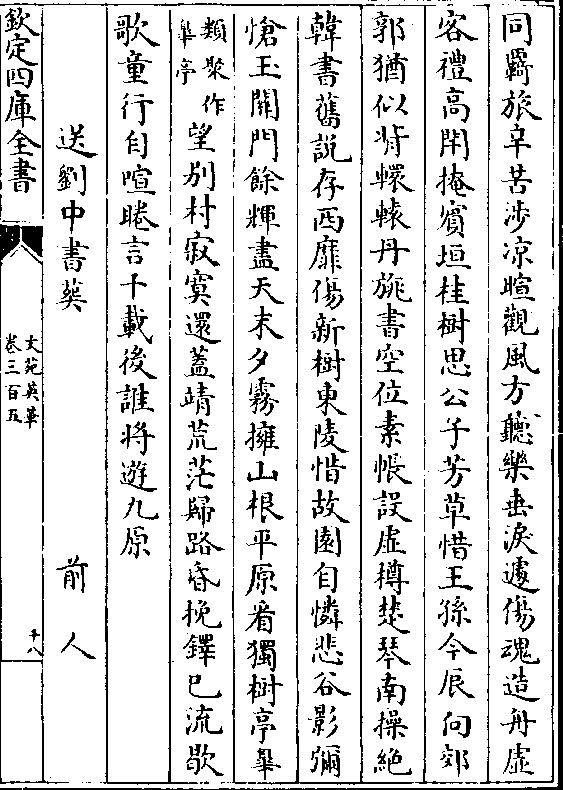 同羇旅辛苦涉凉暄觀風方聽樂垂淚遽傷魂造舟虛
客禮高閈掩賓垣桂樹思公子芳草惜王孫今辰向郊
郭猶似背轘轅丹旐書空位素帳設虛樽楚琴南操絶
韓書舊說存西靡傷新樹東陵惜故園自憐悲谷影彌
愴玉關門餘輝盡天末夕霧擁山根平原看獨樹亭臯
類聚作臯亭望別村寂寞還蓋靖荒茫歸路昏挽鐸已流歇
歌童行自喧睠言千載後誰將遊九原
送劉中書葬　前人
欽定四庫全書
文苑英華
卷三百五
十八